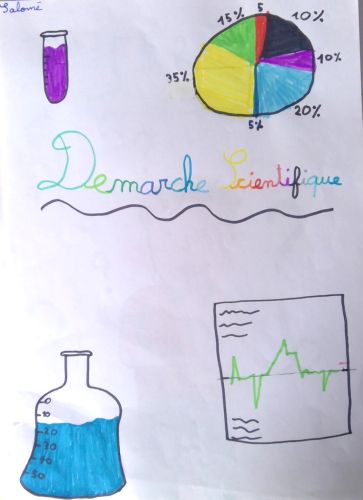 Salomé
5
15% 10%
35% 10%
20%
5%
Demarche Scientifique
0
10
20
30
40
50